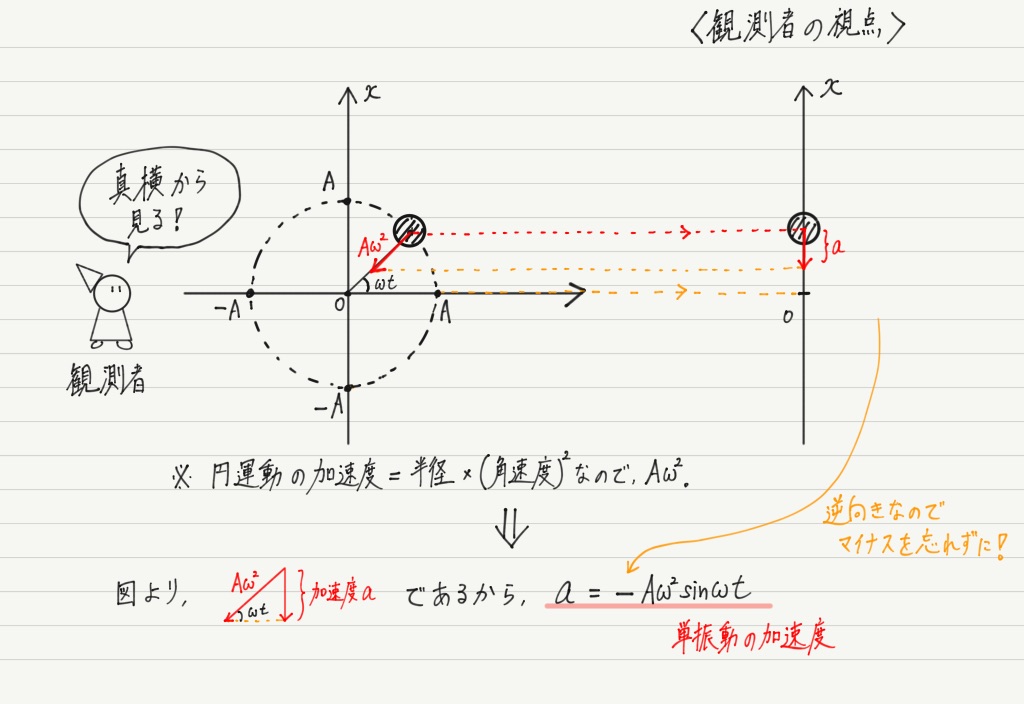 〈観測者の視点〉
x
x
真横から
見る!
A
Aω²
a
ωt
-A
O
A
O
観測者
-A
※ 円運動の加速度 = 半径 × (角速度)² なので, Aω².
⇓
逆向きなので
マイナスを忘れずに!
図より, Aω² ωt 加速度a であるから, a = -Aω² sinωt
単振動の加速度